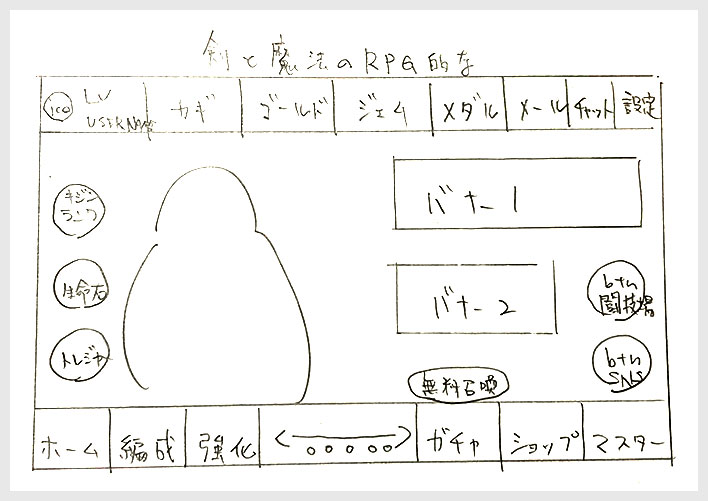 剣と魔法のRPG的な
ico
LV
USER NAME
カギ
ゴールド
ジェム
メダル
メール
チャット
設定
キジン
ランク
生命石
トレジャ
バナー1
バナー2
btn
闘技場
btn
SNS
無料召喚
ホーム
編成
強化
ガチャ
ショップ
マスター